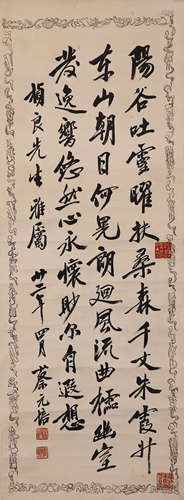 陽谷吐靈曜扶桑森千丈朱霞升
東山朝日何晃朗迴風流曲櫺幽室
發逸響悠然心永懷眇尔自遐想
楨良先生雅屬
卅二年四月蔡元培